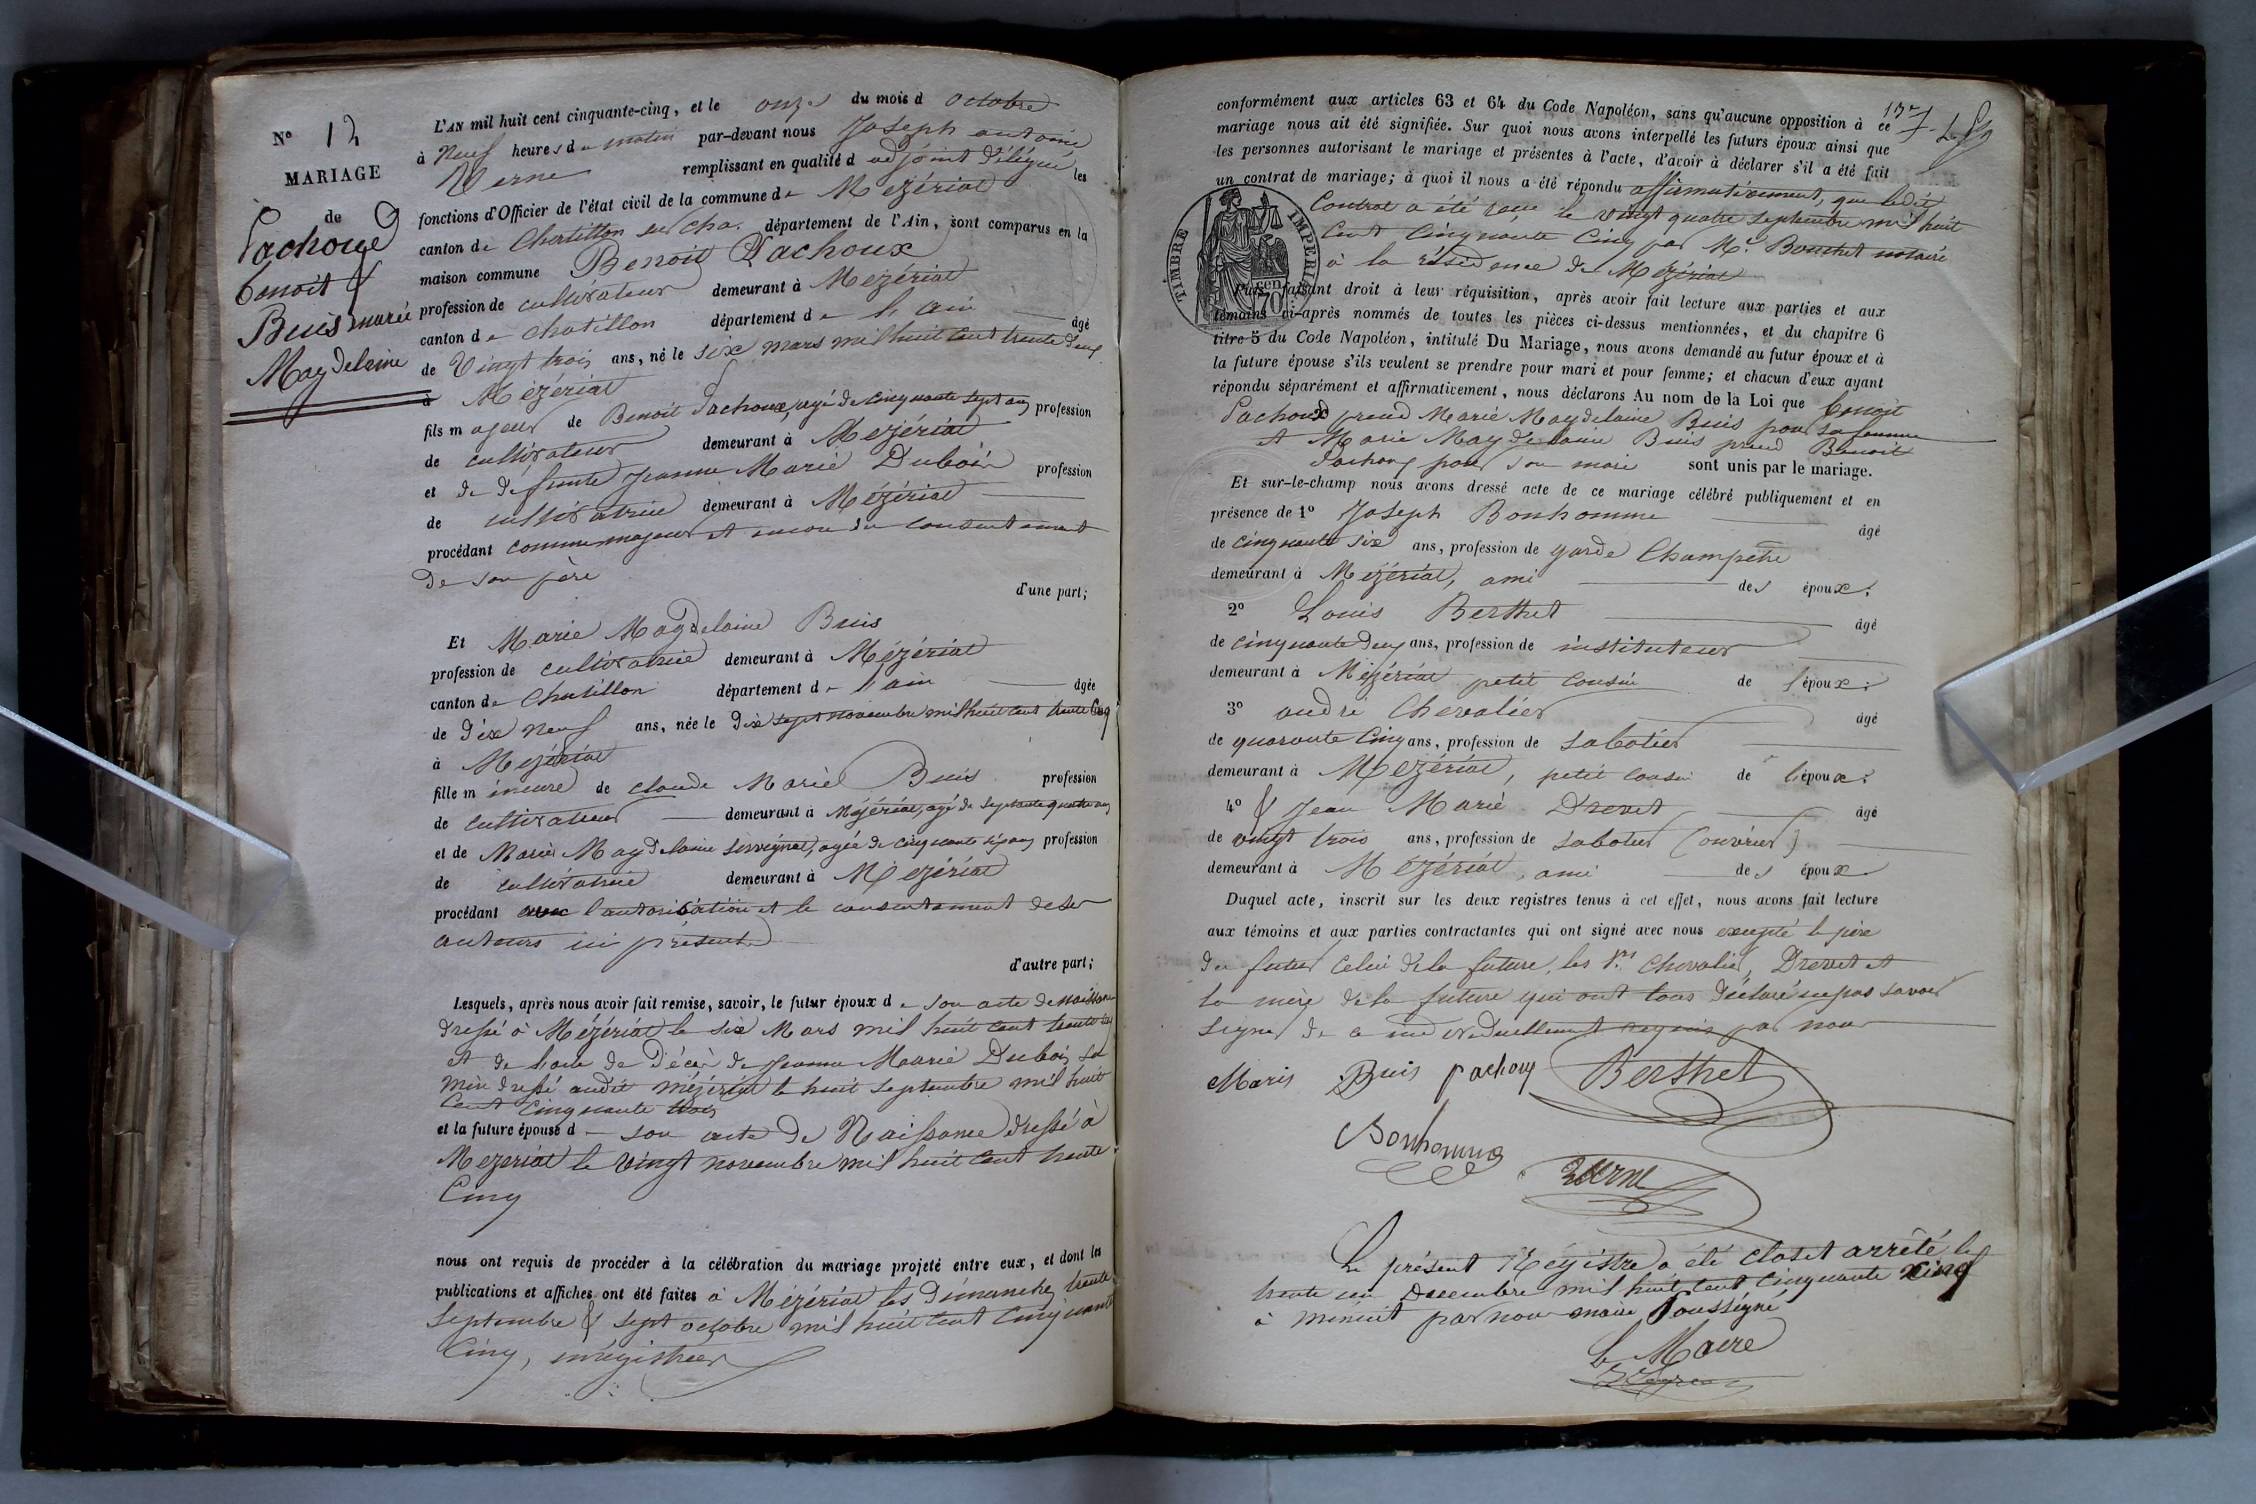 N° 12
MARIAGE
de
Pachoux
benoit &
Buis marie
Magdelaine
L'AN mil huit cent cinquante-cinq, et le onze du mois d octobre
à neuf heures du matin par-devant nous Joseph antoine
Verne remplissant en qualité d adjoint délégué les
fonctions d'Officier de l'état civil de la commune de Mézériat
canton de Chatillon sur Cha. département de l'Ain, sont comparus en la
maison commune Benoit Pachoux
profession de cultivateur demeurant à Mézériat
canton de Chatillon département de l'ain âgé
de Vingt trois ans, né le six mars mil huit cent trente deux
à Mézériat
fils majeur de Benoit Pachoux, agé de cinquante sept ans profession
de cultivateur demeurant à Mézériat
et de défunte Jeanne Marie Dubois profession
de cultivatrice demeurant à Mézériat
procédant comme majeur et encore du consentement
de son père
d'une part;
Et Marie Magdelaine Buis
profession de cultivatrice demeurant à Mézériat
canton de Chatillon département de l'ain âgée
de dix neuf ans, née le dix sept novembre mil huit cent trente cinq
à Mézériat
fille mineure de claude Marie Buis profession
de cultivateur demeurant à Mézériat, agé de septante quatre ans
et de Marie Magdelaine agée de cinquante six ans profession
de cultivatrice demeurant à Mézériat
procédant avec l'autorisation et le consentement de ses
auteurs ici présents
d'autre part;
Lesquels, après nous avoir fait remise, savoir, le futur époux de son acte de naissance
dressé à Mézériat le six Mars mil huit cent trente deux
et de l'acte de décès de Jeanne Marie Dubois sa
mère dressé audit mézériat le huit septembre mil huit
cent cinquante trois
et la future épouse d son acte de Naissance dressé à
Mézériat le vingt novembre mil huit cent trente
Cinq
nous ont requis de procéder à la célébration du mariage projeté entre eux, et dont les
publications et affiches ont été faites à Mézériat les dimanches trente
septembre & sept octobre mil huit cent cinquante
Cinq, enregistrer
conformément aux articles 63 et 64 du Code Napoléon, sans qu'aucune opposition à ce
mariage nous ait été signifiée. Sur quoi nous avons interpellé les futurs époux ainsi que
les personnes autorisant le mariage et présentes à l'acte, d'avoir à déclarer s'il a été fait
un contrat de mariage; à quoi il nous a été répondu affirmativement, que ledit
Contrat a été reçu le vingt quatre septembre mil huit
cent cinquante cinq par Me. Bouchet notaire
à la résidence de Mézériat
TIMBRE IMPERIAL
cen 70
Puis, faisant droit à leur réquisition, après avoir fait lecture aux parties et aux
témoins ci-après nommés de toutes les pièces ci-dessus mentionnées, et du chapitre 6
titre 5 du Code Napoléon, intitulé Du Mariage, nous avons demandé au futur époux et à
la future épouse s'ils veulent se prendre pour mari et pour femme; et chacun d'eux ayant
répondu séparément et affirmativement, nous déclarons Au nom de la Loi que benoit
Pachoux prend Marie Magdelaine Buis pour sa femme
et Marie Magdelaine Buis prend Benoit
Pachoux pour son mari sont unis par le mariage.
Et sur-le-champ nous avons dressé acte de ce mariage célébré publiquement et en
présence de 1° Joseph Bonhomme âgé
de cinquante six ans, profession de garde Champêtre
demeurant à Mézériat, ami des époux.
2° Louis Berthet âgé
de cinquante deux ans, profession de instituteur
demeurant à Mézériat petit cousin de l'époux.
3° andré Chevalier âgé
de quarante cinq ans, profession de sabotier
demeurant à Mézériat, petit cousin de l'époux.
4° & Jean Marie Drevet âgé
de vingt trois ans, profession de sabotier (ouvrier)
demeurant à Mézériat, ami des époux
Duquel acte, inscrit sur les deux registres tenus à cet effet, nous avons fait lecture
aux témoins et aux parties contractantes qui ont signé avec nous excepté le père
du futur celui de la future, les Srs Chevalier, Drevet et
la mère de la future qui ont tous déclaré ne pas savoir
signer de ce individuellement requis par nous
Marie Buis pachoux Berthet
Bonhomme
Verne
Le présent Régistre a été clos et arrêté le
trente un Décembre mil huit cent cinquante cinq
à minuit par nous maire soussigné
le Maire